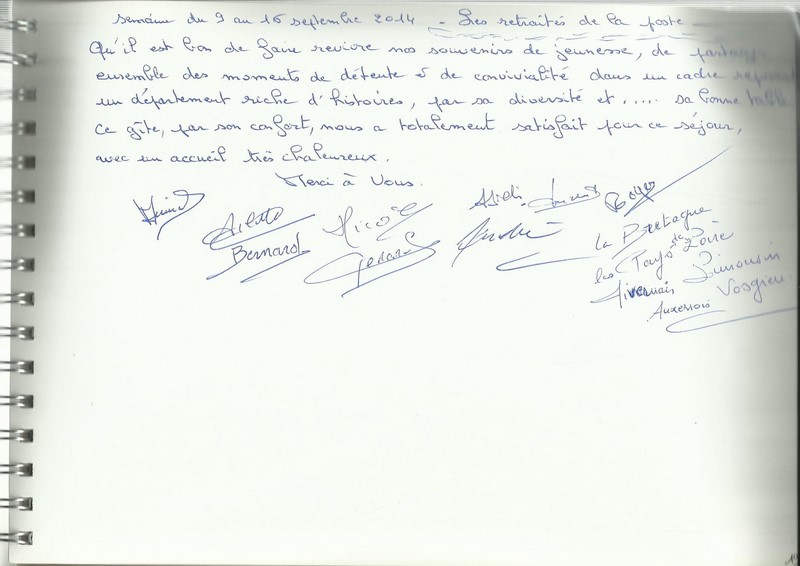 semaine du 9 au 16 septembre 2014 - Les retraités de la poste
Qu'il est bon de faire revivre nos souvenirs de jeunesse, de partager
ensemble des moments de détente & de convivialité dans un cadre reposant
un département riche d'histoires, par sa diversité et ..... sa bonne table
Ce gîte, par son confort, nous a totalement satisfait pour ce séjour,
avec un accueil très chaleureux.
Merci à Vous.
Arlette
Bernard
Nicole
Gérard
André
la Bretagne
les Pays de Loire
Nivernais Limousin
Auxerrois Vosgien